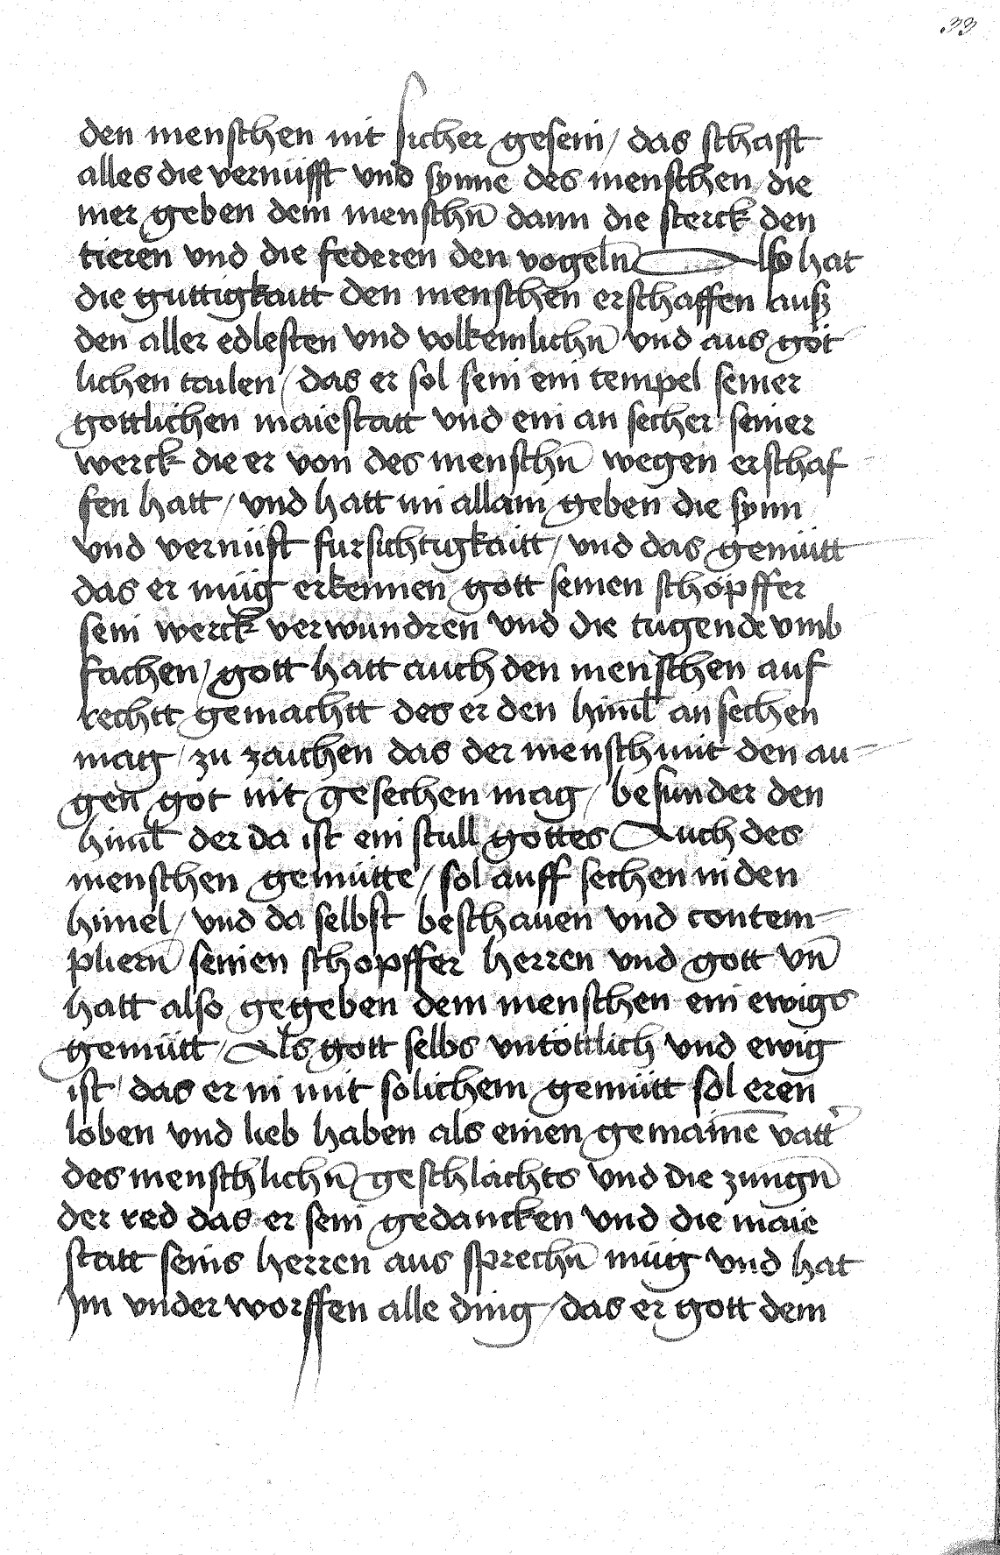 33
den menschen nit sicher gesein / das schafft
alles die vernüfft vnd synne des menschen die
mer geben dem menschn̄ dann die sterck den
tieren vnd die federen den vogeln̄ Also hat
die guttigkaitt den menschen erschaffen auß
den aller edlesten vnd volkemlichn̄ vnd aus göt
lichen tailen / das er sol sein ein tempel seiner
gottlichen maiestatt vnd ein an secher seiner
werck die er von des menschn̄ wegen erschaf
fen hatt / vnd hatt im allain geben die synn
vnd vernüft fursichtigkaitt / vnd das gemütt
das er müg erkennen gott seinen schöpffer
sein werck verwundren vnd die tugende vmb
fachen / gott hatt auch den menschen auf
rechtt gemachtt des er den himl̄ an sechen
mag / zu zaichen das der mensch mit den au-
gen got nit gesechen mag / besunder den
himl̄ der da ist ein stull gottes Auch des
menschen gemütte / sol auff sechen in den
himel / vnd da selbst beschauen vnd contem-
pliern̄ seinen schopffer herren vnd gott vn̄
hatt also gegeben dem menschen ein ewigs
gemütt / Als gott selbs vntöttlich vnd ewig
ist / das er in mit solichem gemütt sol eren
loben vnd lieb haben als einen gemainē vatt'
des menschlichn̄ geschlächts vnd die zungn̄
der red das er sein gedancken vnd die maie
statt seins herren aus sprechn̄ müg vnd hat
Im vnderworffen alle ding / das er gott dem